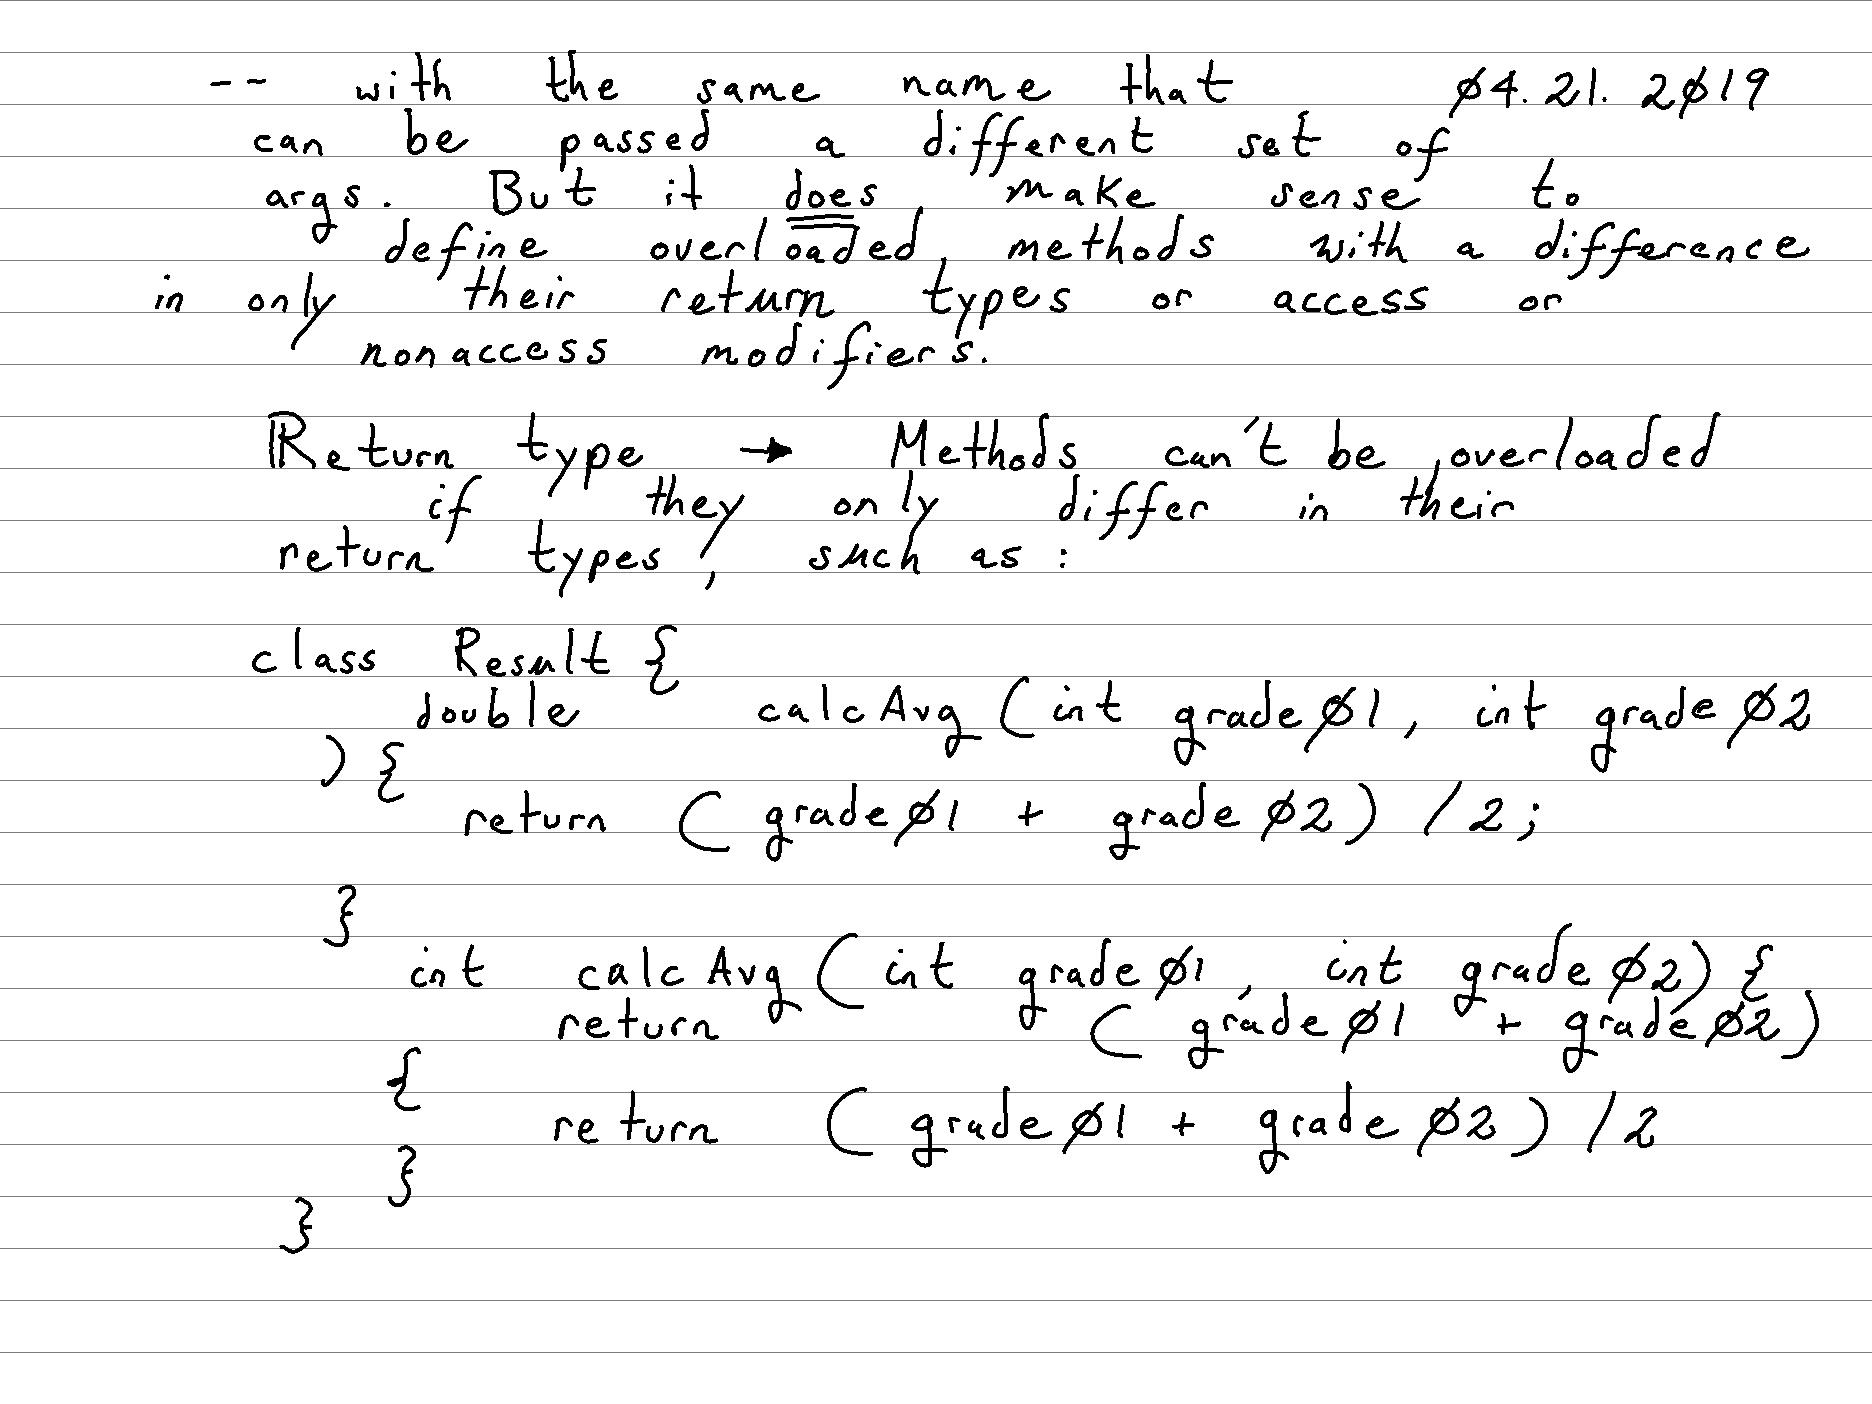 -- with the same name that 04.21.2019
can be passed a different set of
args. But it does make sense to
define overloaded methods with a difference
in only their return types or access or
nonaccess modifiers.
Return type → Methods can't be overloaded
if they only differ in their
return types, such as:
class Result {
double calcAvg (int grade01, int grade02
) {
return (grade01 + grade02) /2;
}
int calcAvg (int grade01, int grade02) {
return (grade01 + grade02)
{
return (grade01 + grade02) /2
}
}